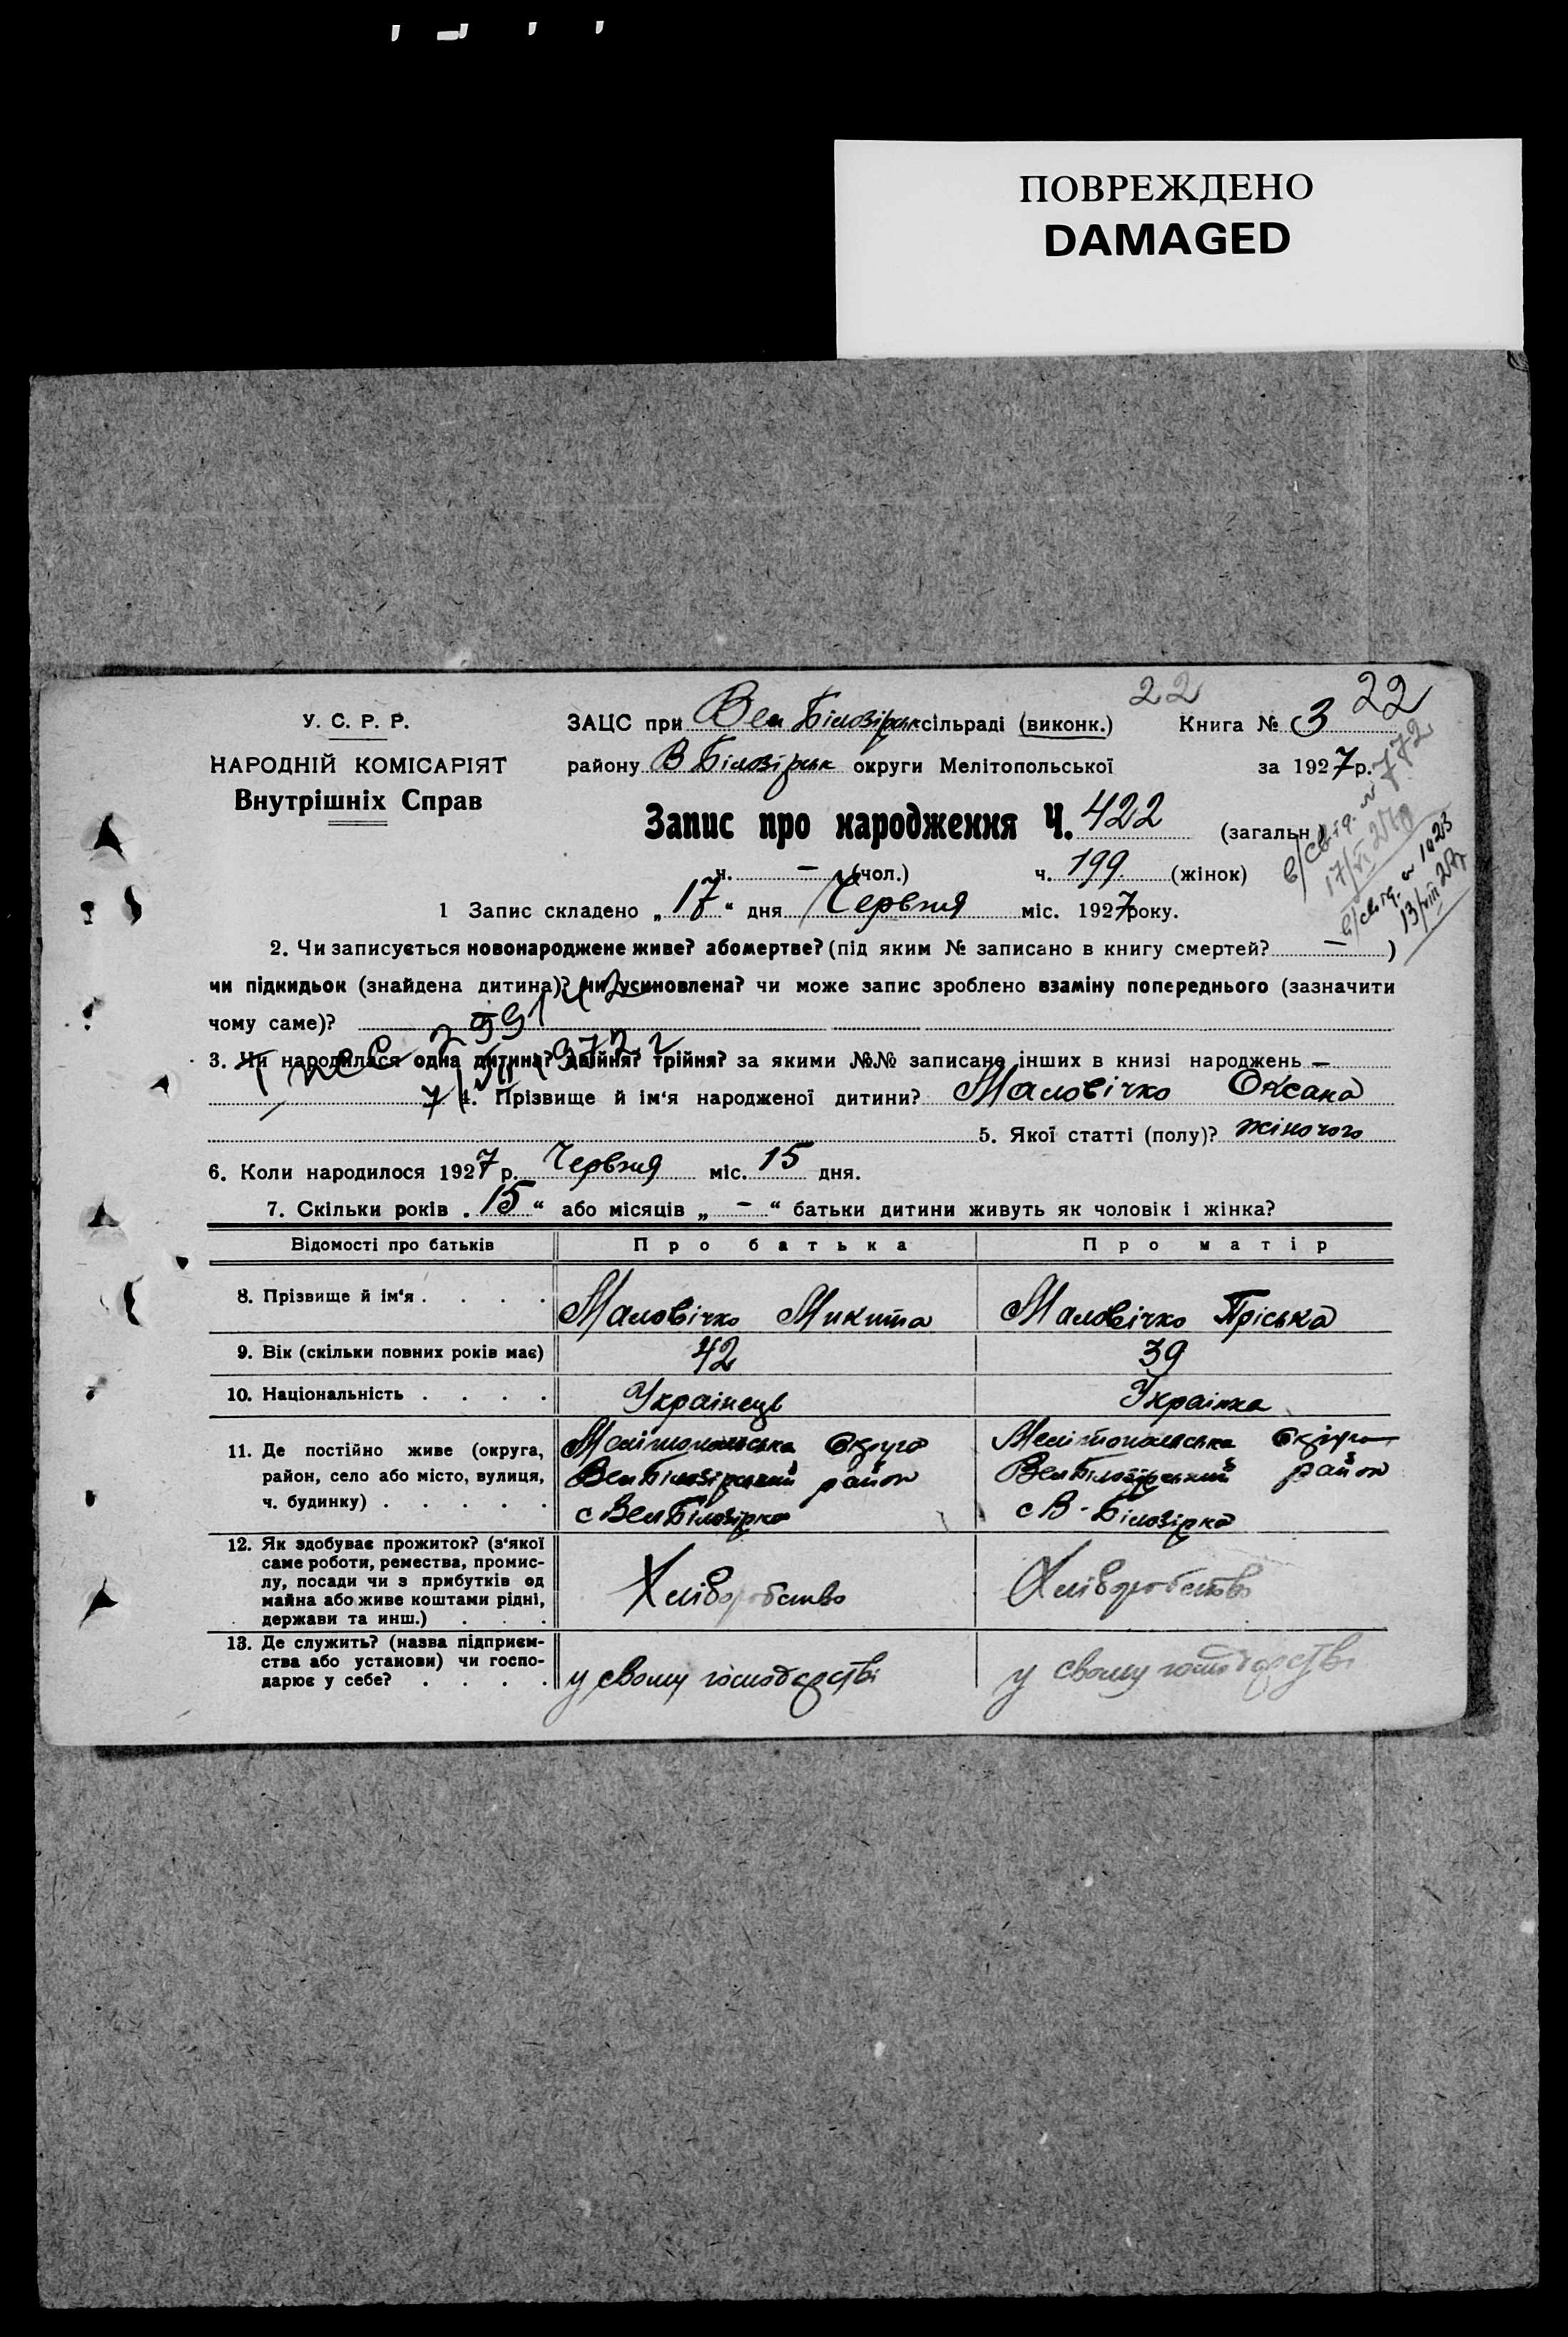 ПОВРЕЖДЕНО
DAMAGED
22
22
У. С. Р. Р.
НАРОДНІЙ КОМІСАРІЯТ
Внутрішніх Справ
ЗАЦС при Вел Білозірськ сільраді (виконк.) Книга № 3
району В Білозірськ округи Мелітопольської за 1927 р.
Запис про народження Ч. 422 (загальн.)
ч. — (чол.) ч. 199 (жінок)
в/свід. № 772
17/VI 27р
в/свід. № 1023
13/VIII 27р
1 Запис складено „ 17 “ дня Червня міс. 1927 року.
2. Чи записується новонароджене живе? або мертве? (під яким № записано в книгу смертей? — )
чи підкидьок (знайдена дитина)? чи усиновлена? чи може запис зроблено взаміну попереднього (зазначити
чому саме)?
3. Чи народилася одна дитина? двійня? трійня? за якими №№ записане інших в книзі народжень —
4. Прізвище й ім‘я народженої дитини? Маловічко Оксана
5. Якої статті (полу)? жіночого
6. Коли народилося 1927 р. Червня міс. 15 дня.
7. Скільки років „ 15 “ або місяців „ — “ батьки дитини живуть як чоловік і жінка?
Відомості про батьків Про батька Про матір
8. Прізвище й ім‘я . . . . Маловічко Микита Маловічко Пріська
9. Вік (скільки повних років має) 42 39
10. Національність . . . . Українець Українка
11. Де постійно живе (округа, район, село або місто, вулиця, ч. будинку) . . . . .
Мелітопольська округа
Вел Білозірський район
с Вел Білозірка
Мелітопольська округа
Вел Білозірський район
с В-Білозірка
12. Як здобуває прожиток? (з‘якої
саме роботи, ремества, промис-
лу, посади чи з прибутків од
майна або живе коштами рідні,
держави та инш.) . . .
Хліборобство Хліборобство
13. Де служить? (назва підприєм-
ства або установи) чи госпо-
дарює у себе? . . . .
у свому господарстві у свому господарстві